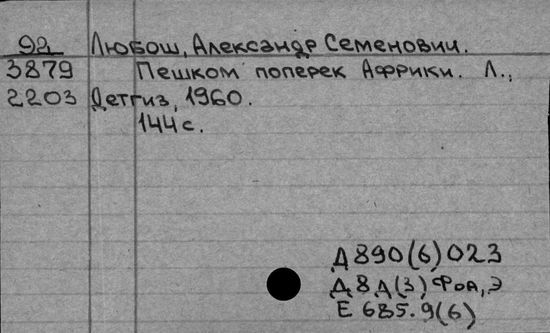 92 Любош, Александр Семенович.
3879 Пешком поперек Африки. Л.,
2203 Детгиз, 1960.
144 с.
Д 890(6)023
Д 8 Д(3) Фоа, Э
Е 685.9(6)